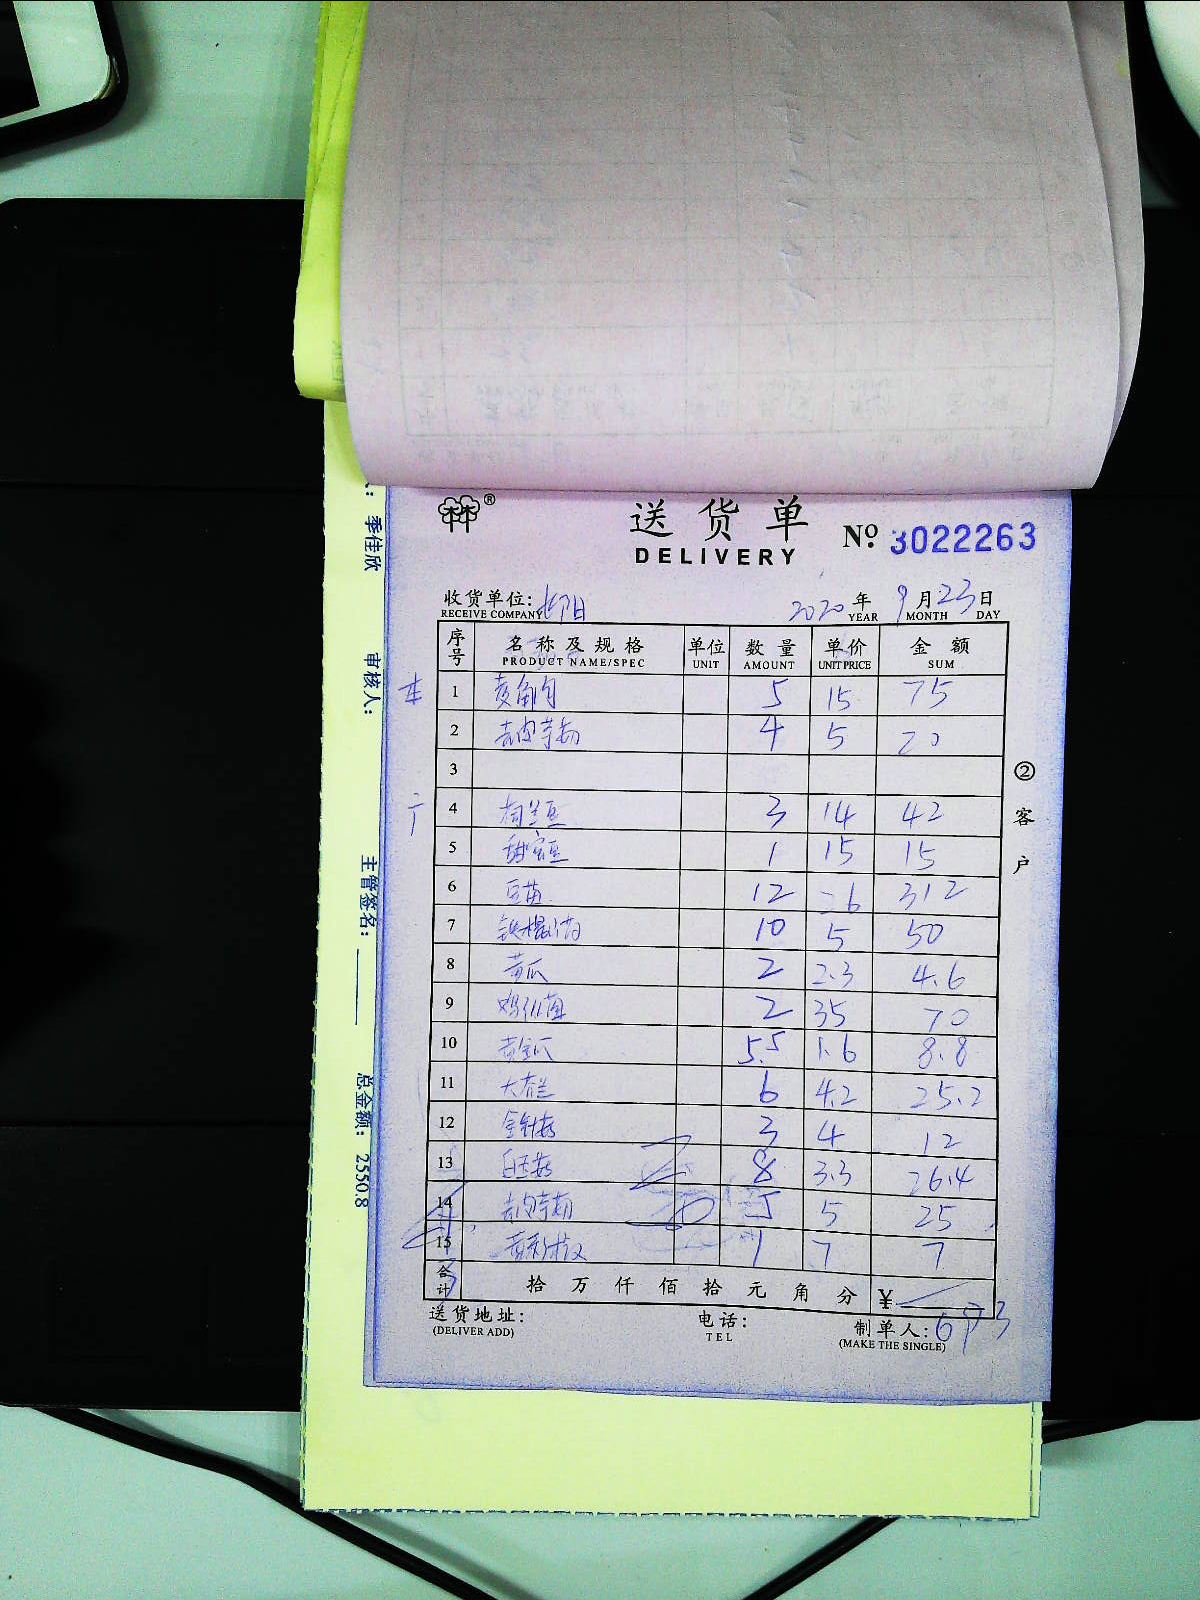 ®
送货单
DELIVERY
№ 3022263
收货单位: 长阳 2020年 9月23日
RECEIVE COMPANY YEAR MONTH DAY
序号 名称及规格 单位 数量 单价 金额
PRODUCT NAME/SPEC UNIT AMOUNT UNIT PRICE SUM
本
1 菱角肉 5 15 75
2 去皮芋艿 4 5 20
3
4 荷兰豆 3 14 42
5 甜蜜豆 1 15 15
6 豆苗 12 26 312
7 铁棍山药 10 5 50
8 黄瓜 2 2.3 4.6
9 鸡枞菌 2 35 70
10 黄金瓜 5.5 1.6 8.8
11 6 4.2 25.2
12 金针菇 3 4 12
13 白玉菇 8 3.3 26.4
14 去皮芋艿 5 5 25
15 1 7 7
合计 拾 万 仟 佰 拾 元 角 分 ¥
693
送货地址: 电话: 制单人:
(DELIVER ADD) TEL (MAKE THE SINGLE)
②客户
季佳欣 审核人: 主管签名: 总金额: 2550.8